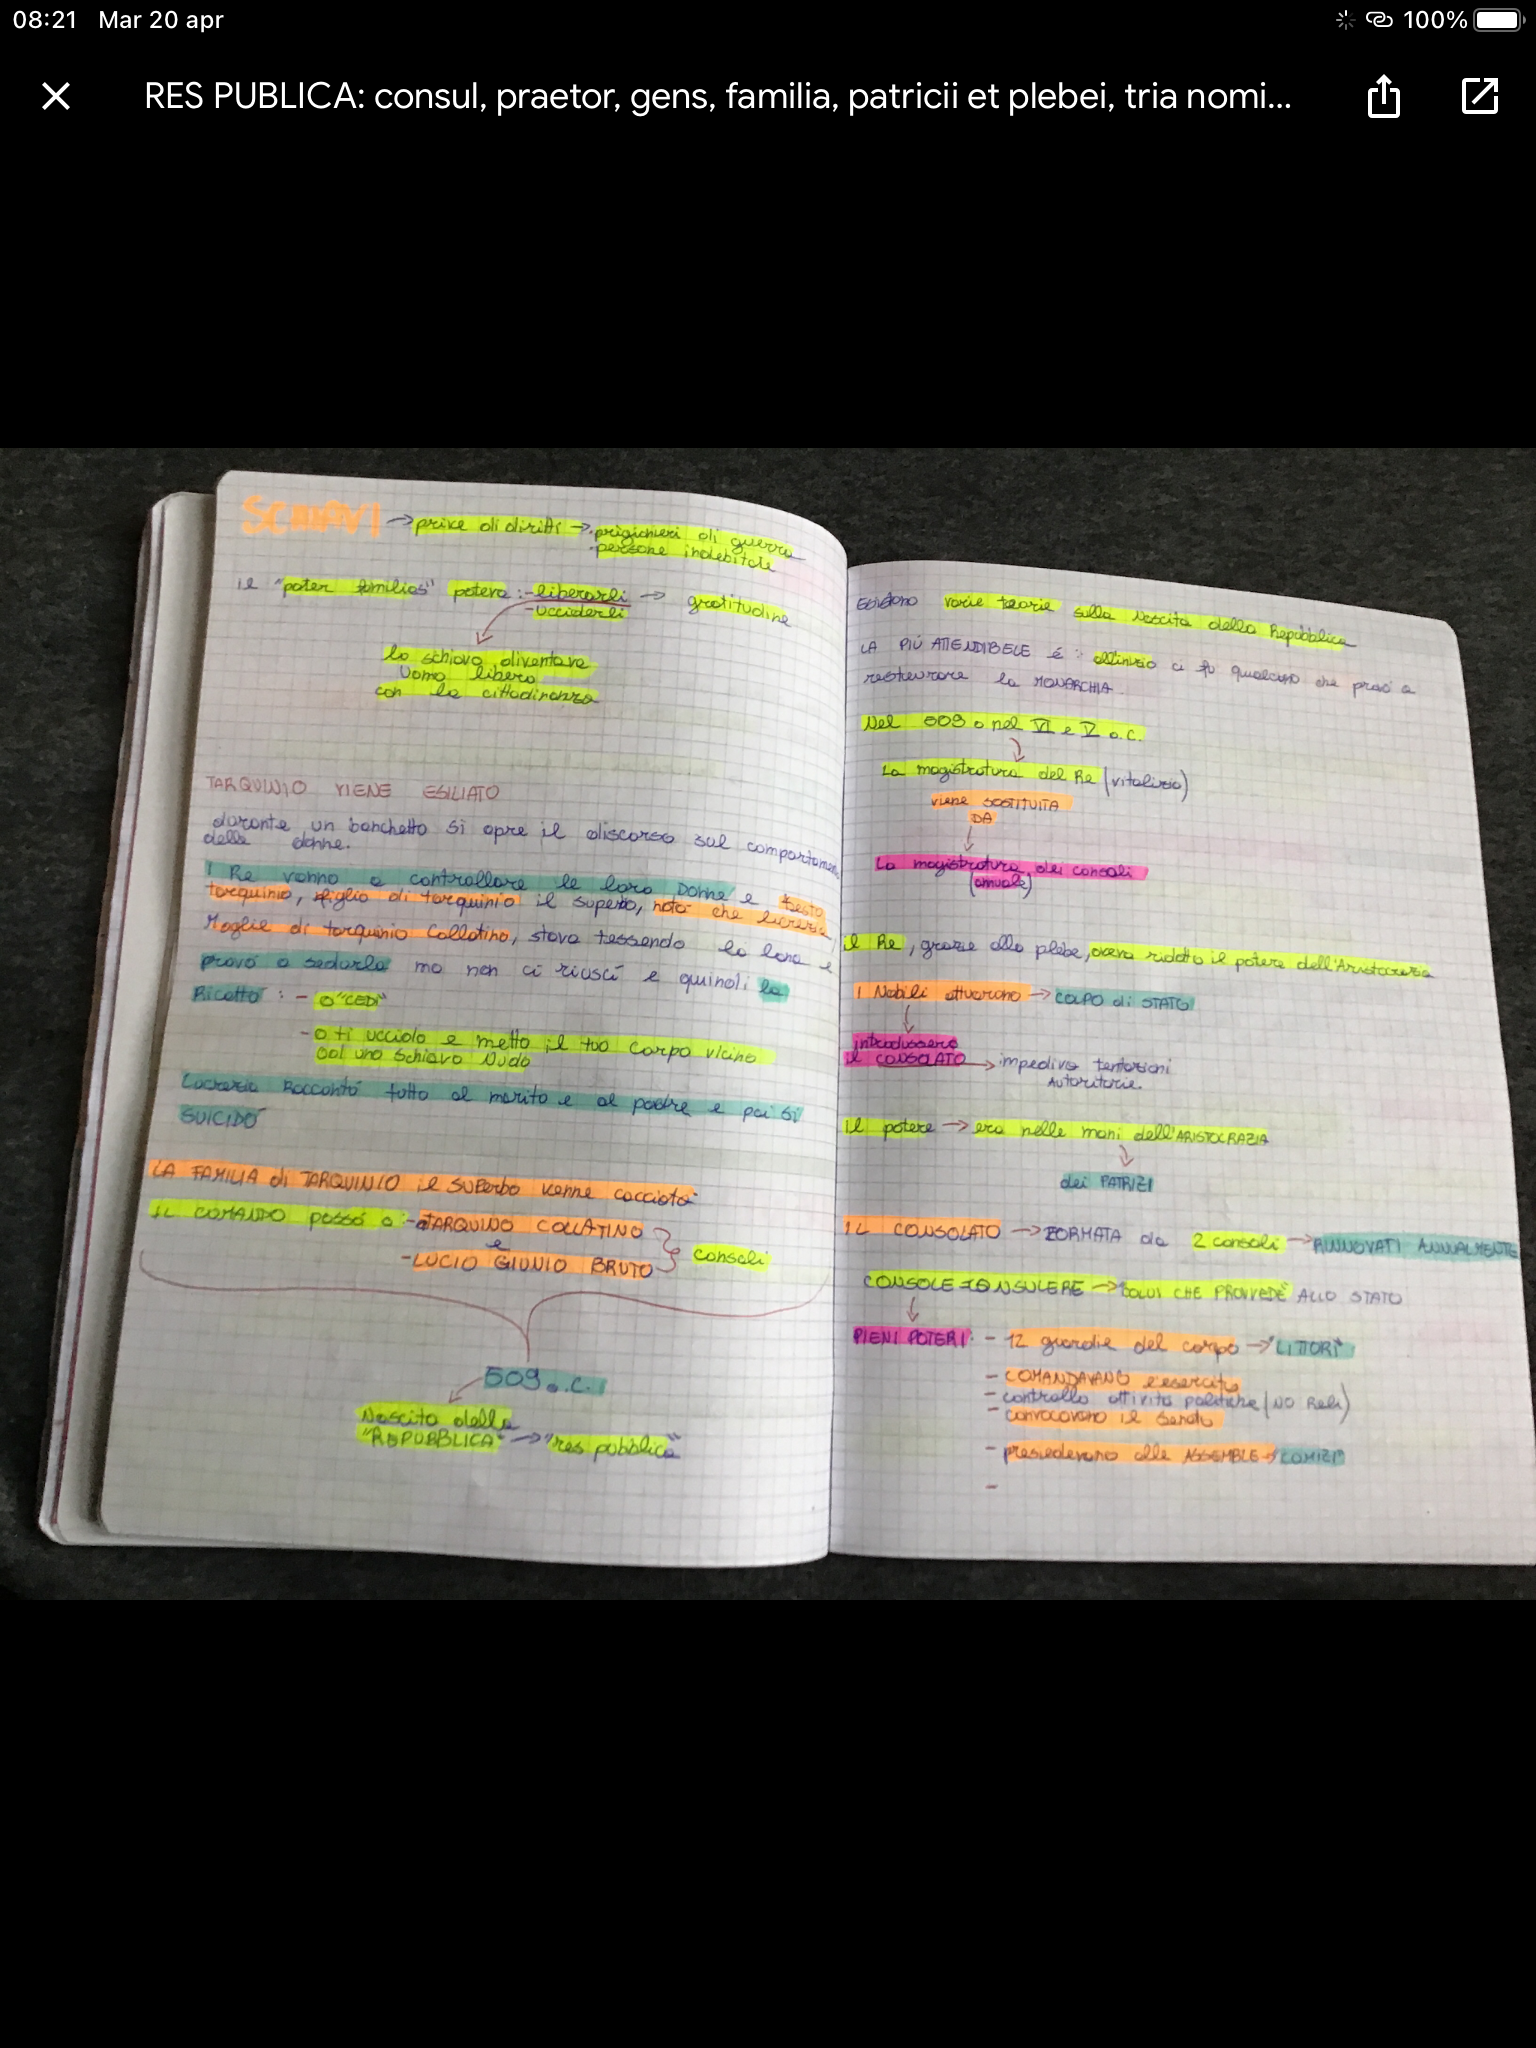 08:21 Mar 20 apr
100%
RES PUBLICA: consul, praetor, gens, familia, patricii et plebei, tria nomi...
SCHIAVI → prive di diritti → • prigionieri di guerra
• persone indebitate
il "pater familias" poteva : - liberarli → gratitudine
- ucciderli
lo schiavo diventava
Uomo libero
con la cittadinanza
TARQUINIO VIENE ESILIATO
durante un banchetto si apre il discorso sul comportamen
delle donne.
I Re vanno a controllare le loro Donne e Sesto
tarquinio, figlio di tarquinio il superbo, notò che lucrezia,
Moglie di tarquinio Collatino, stava tessendo la lana e
provò a sedurla ma non ci riuscì e quindi la
Ricattò : - O "CEDI"
- O ti uccido e metto il tuo corpo vicino
ad uno schiavo Nudo
Lucrezia Raccontò tutto al marito e al padre e poi si
SUICIDÒ
LA FAMILIA di TARQUINIO il SUPERbo venne cacciata
IL COMANDO passò a : - TARQUINO COLLATINO
e
- LUCIO GIUNIO BRUTO
consoli
509 a.C.
Nascita della
"REPUBBLICA" → "res pubblica"
Esistono varie teorie sulla Nascita della Repubblica
LA PIÙ ATTENDIBELE é : all'inizio ci fu qualcuno che provò a
restaurare la MONARCHIA.
Nel 509 o nel VI e V a.C.
La magistratura del Re (vitalizia)
viene SOSTITUITA
DA
La magistratura dei consoli
(annuale)
il Re, grazie alla plebe, aveva ridotto il potere dell'Aristocrazia
I Nobili attuarono → COLPO di STATO
introdussero
il CONSOLATO → impediva tentazioni
AUTORITARIE.
il potere → era nelle mani dell'ARISTOCRAZIA
dei PATRIZI
IL CONSOLATO → FORMATA da 2 consoli → RINNOVATI ANNUALMENTE
CONSOLE = CONSULERE → "COLUI CHE PROVVEDE" ALLO STATO
PIENI POTERI : - 12 guardie del corpo → "LITTORI"
- COMANDAVANO l'esercito
- controllo attività politiche (NO Reli)
- convocavano il Senato
- presiedevano alle ASSEMBLE → "COMIZI"
-